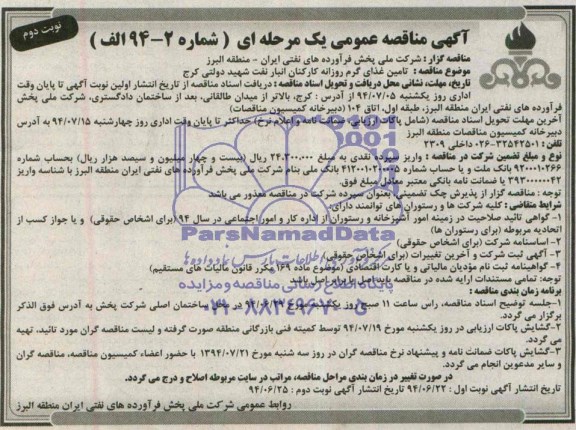 نوبت دوم
آگهی مناقصه عمومی یک مرحله ای ( شماره ۲-۹۴ الف )
مناقصه گزار : شرکت ملی پخش فرآورده های نفتی ایران - منطقه البرز
موضوع مناقصه : تامین غذای گرم روزانه کارکنان انبار نفت شهید دولتی کرج
تاریخ، مهلت، نشانی محل دریافت و تحویل اسناد مناقصه : دریافت اسناد مناقصه از تاریخ انتشار اولین نوبت آگهی تا پایان وقت
اداری روز یکشنبه ۹۴/۰۷/۰۵ از آدرس : کرج، بالاتر از میدان طالقانی، بعد از ساختمان دادگستری، شرکت ملی پخش
فرآورده های نفتی ایران منطقه البرز، طبقه اول، اتاق ۱۰۴ (دبیرخانه کمیسیون مناقصات)
آخرین مهلت تحویل اسناد مناقصه (شامل پاکات ارزیابی، ضمانت نامه و اعلام نرخ) حداکثر تا پایان وقت اداری روز چهارشنبه ۹۴/۰۷/۱۵ به آدرس
دبیرخانه کمیسیون مناقصات منطقه البرز
تلفن : ۳۲۵۴۲۵۰۱-۰۲۶ داخلی ۲۳۰۹
نوع و مبلغ تضمین شرکت در مناقصه : واریز سپرده نقدی به مبلغ ۲۴.۳۰۰.۰۰۰ ریال (بیست و چهار میلیون و سیصد هزار ریال) بحساب شماره
۹۲۰۰۰۱۰۳۶۶ بانک ملت و یا حساب شماره ۴۱۲۰۰۱۰۲۰۰۰۵ بانک ملی بنام شرکت ملی پخش فرآورده های نفتی ایران منطقه البرز با شناسه واریز
۳۹۳۰۰۰۰۰۰۴۳ یا ضمانت نامه بانکی معتبر معادل مبلغ فوق.
توجه : مناقصه گزار از پذیرش چک تضمینی بعنوان سپرده شرکت در مناقصه معذور می باشد
شرایط متقاضی : کلیه شرکت ها و رستوران های توانمند دارای:
۱- گواهی تائید صلاحیت در زمینه امور آشپزخانه و رستوران از اداره کار و امور اجتماعی در سال ۹۴ (برای اشخاص حقوقی) و یا جواز کسب از
اتحادیه مربوطه (برای رستوران ها)
۲- اساسنامه شرکت (برای اشخاص حقوقی)
۳- آگهی ثبت شرکت و آخرین تغییرات (برای اشخاص حقوقی)
۴- گواهینامه ثبت نام مؤدیان مالیاتی و یا کارت اقتصادی (موضوع ماده ۱۶۹ مکرر قانون مالیات های مستقیم)
توجه: تمامی مستندات ارایه شده در مناقصه بایستی اصل یا برابر اصل باشد.
برنامه زمان بندی مناقصه :
۱- جلسه توضیح اسناد مناقصه، راس ساعت ۱۱ صبح روز یکشنبه مورخ در محل ساختمان اصلی شرکت پخش به آدرس فوق الذکر
برگزار می گردد.
۲- گشایش پاکات ارزیابی در روز یکشنبه مورخ ۹۴/۰۷/۱۹ توسط کمیته فنی بازرگانی منطقه صورت گرفته و لیست مناقصه گران مورد تائید، تهیه
می گردد.
۳- گشایش پاکات ضمانت نامه و پیشنهاد نرخ مناقصه گران در روز سه شنبه مورخ ۱۳۹۴/۰۷/۲۱ با حضور اعضاء کمیسیون مناقصه، مناقصه گران
و سایر مدعوین انجام می گردد.
در صورت تغییر در زمان بندی مراحل مناقصه، مراتب در سایت مربوطه اصلاح و درج می گردد.
تاریخ انتشار آگهی نوبت اول : ۹۴/۰۶/۲۲ تاریخ انتشار آگهی نوبت دوم : ۹۴/۰۶/۲۵
روابط عمومی شرکت ملی پخش فرآورده های نفتی ایران منطقه البرز
ParsNamadData
گردآوری اطلاعات پارس نماد داده ها
پایگاه اطلاع رسانی مناقصه و مزایده
۰۲۱-۸۸۳۴۹۶۷۰-۵